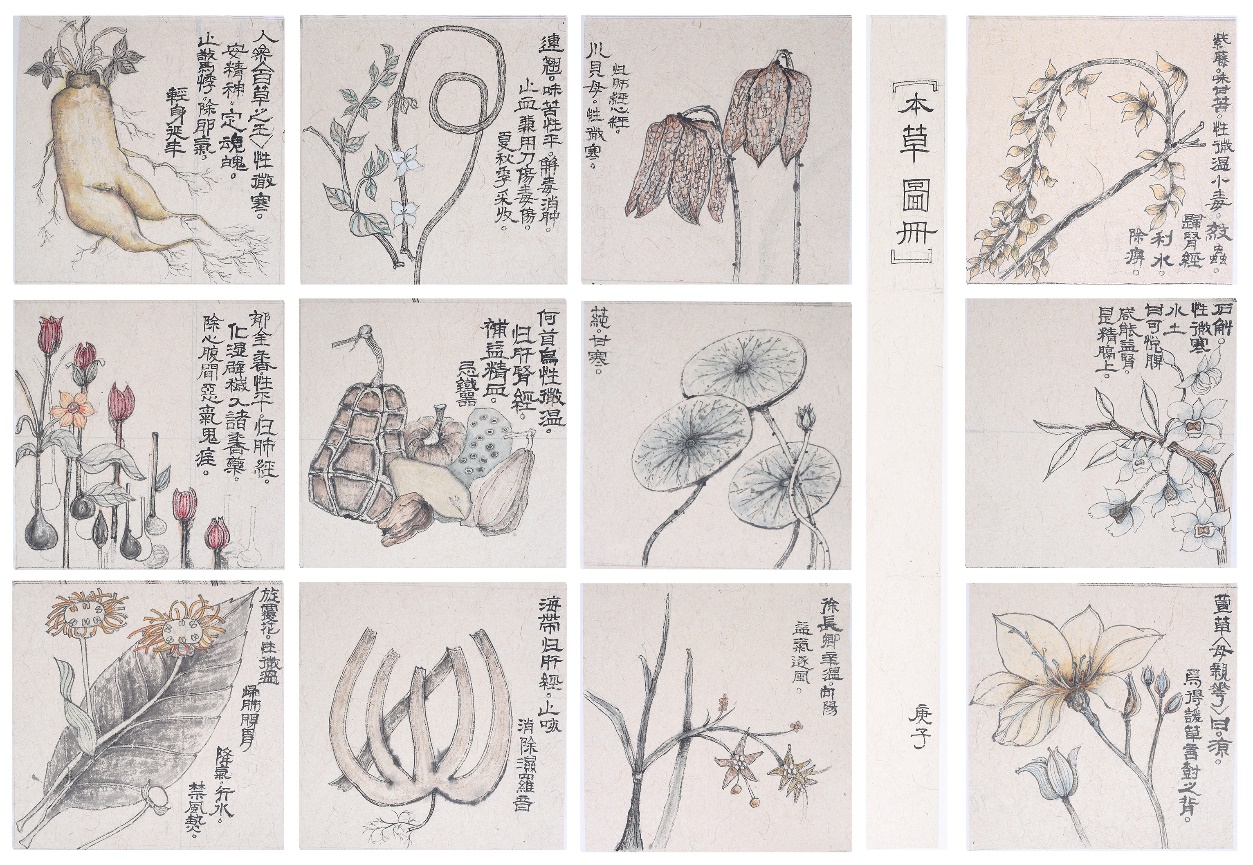 人参〈百草之王〉性微寒。
安精神。定魂魄。
止驚悸。除邪氣。
輕身延年
連翹。味苦性平。解毒消肿。
止血藥用刀傷毒傷。
夏秋季采收。
川貝母。性微寒。
归肺經心經。
[本草圖冊]
庚子
紫藤。味甘苦。性微温小毒。殺蟲。
歸腎經
利水。
除痹。
郁金香性平。归肺經。
化湿辟穢入諸香藥。
除心腹間惡氣鬼疰。
何首烏性微温。
归肝腎經。
補益精血。
忌鐵器
蒓。甘寒。
石斛。
性微寒
水土
甘可悅脾
咸能益腎。
是精膈上。
旋覆花。性微温
歸肺脾胃
降氣。行水。
禁風熱。
海帶归肝經。止咳
消除濕
徐長卿辛温。向陽
益氣逐風。
萱草〈母親花〉曰。凉。
為得護草言對之背。